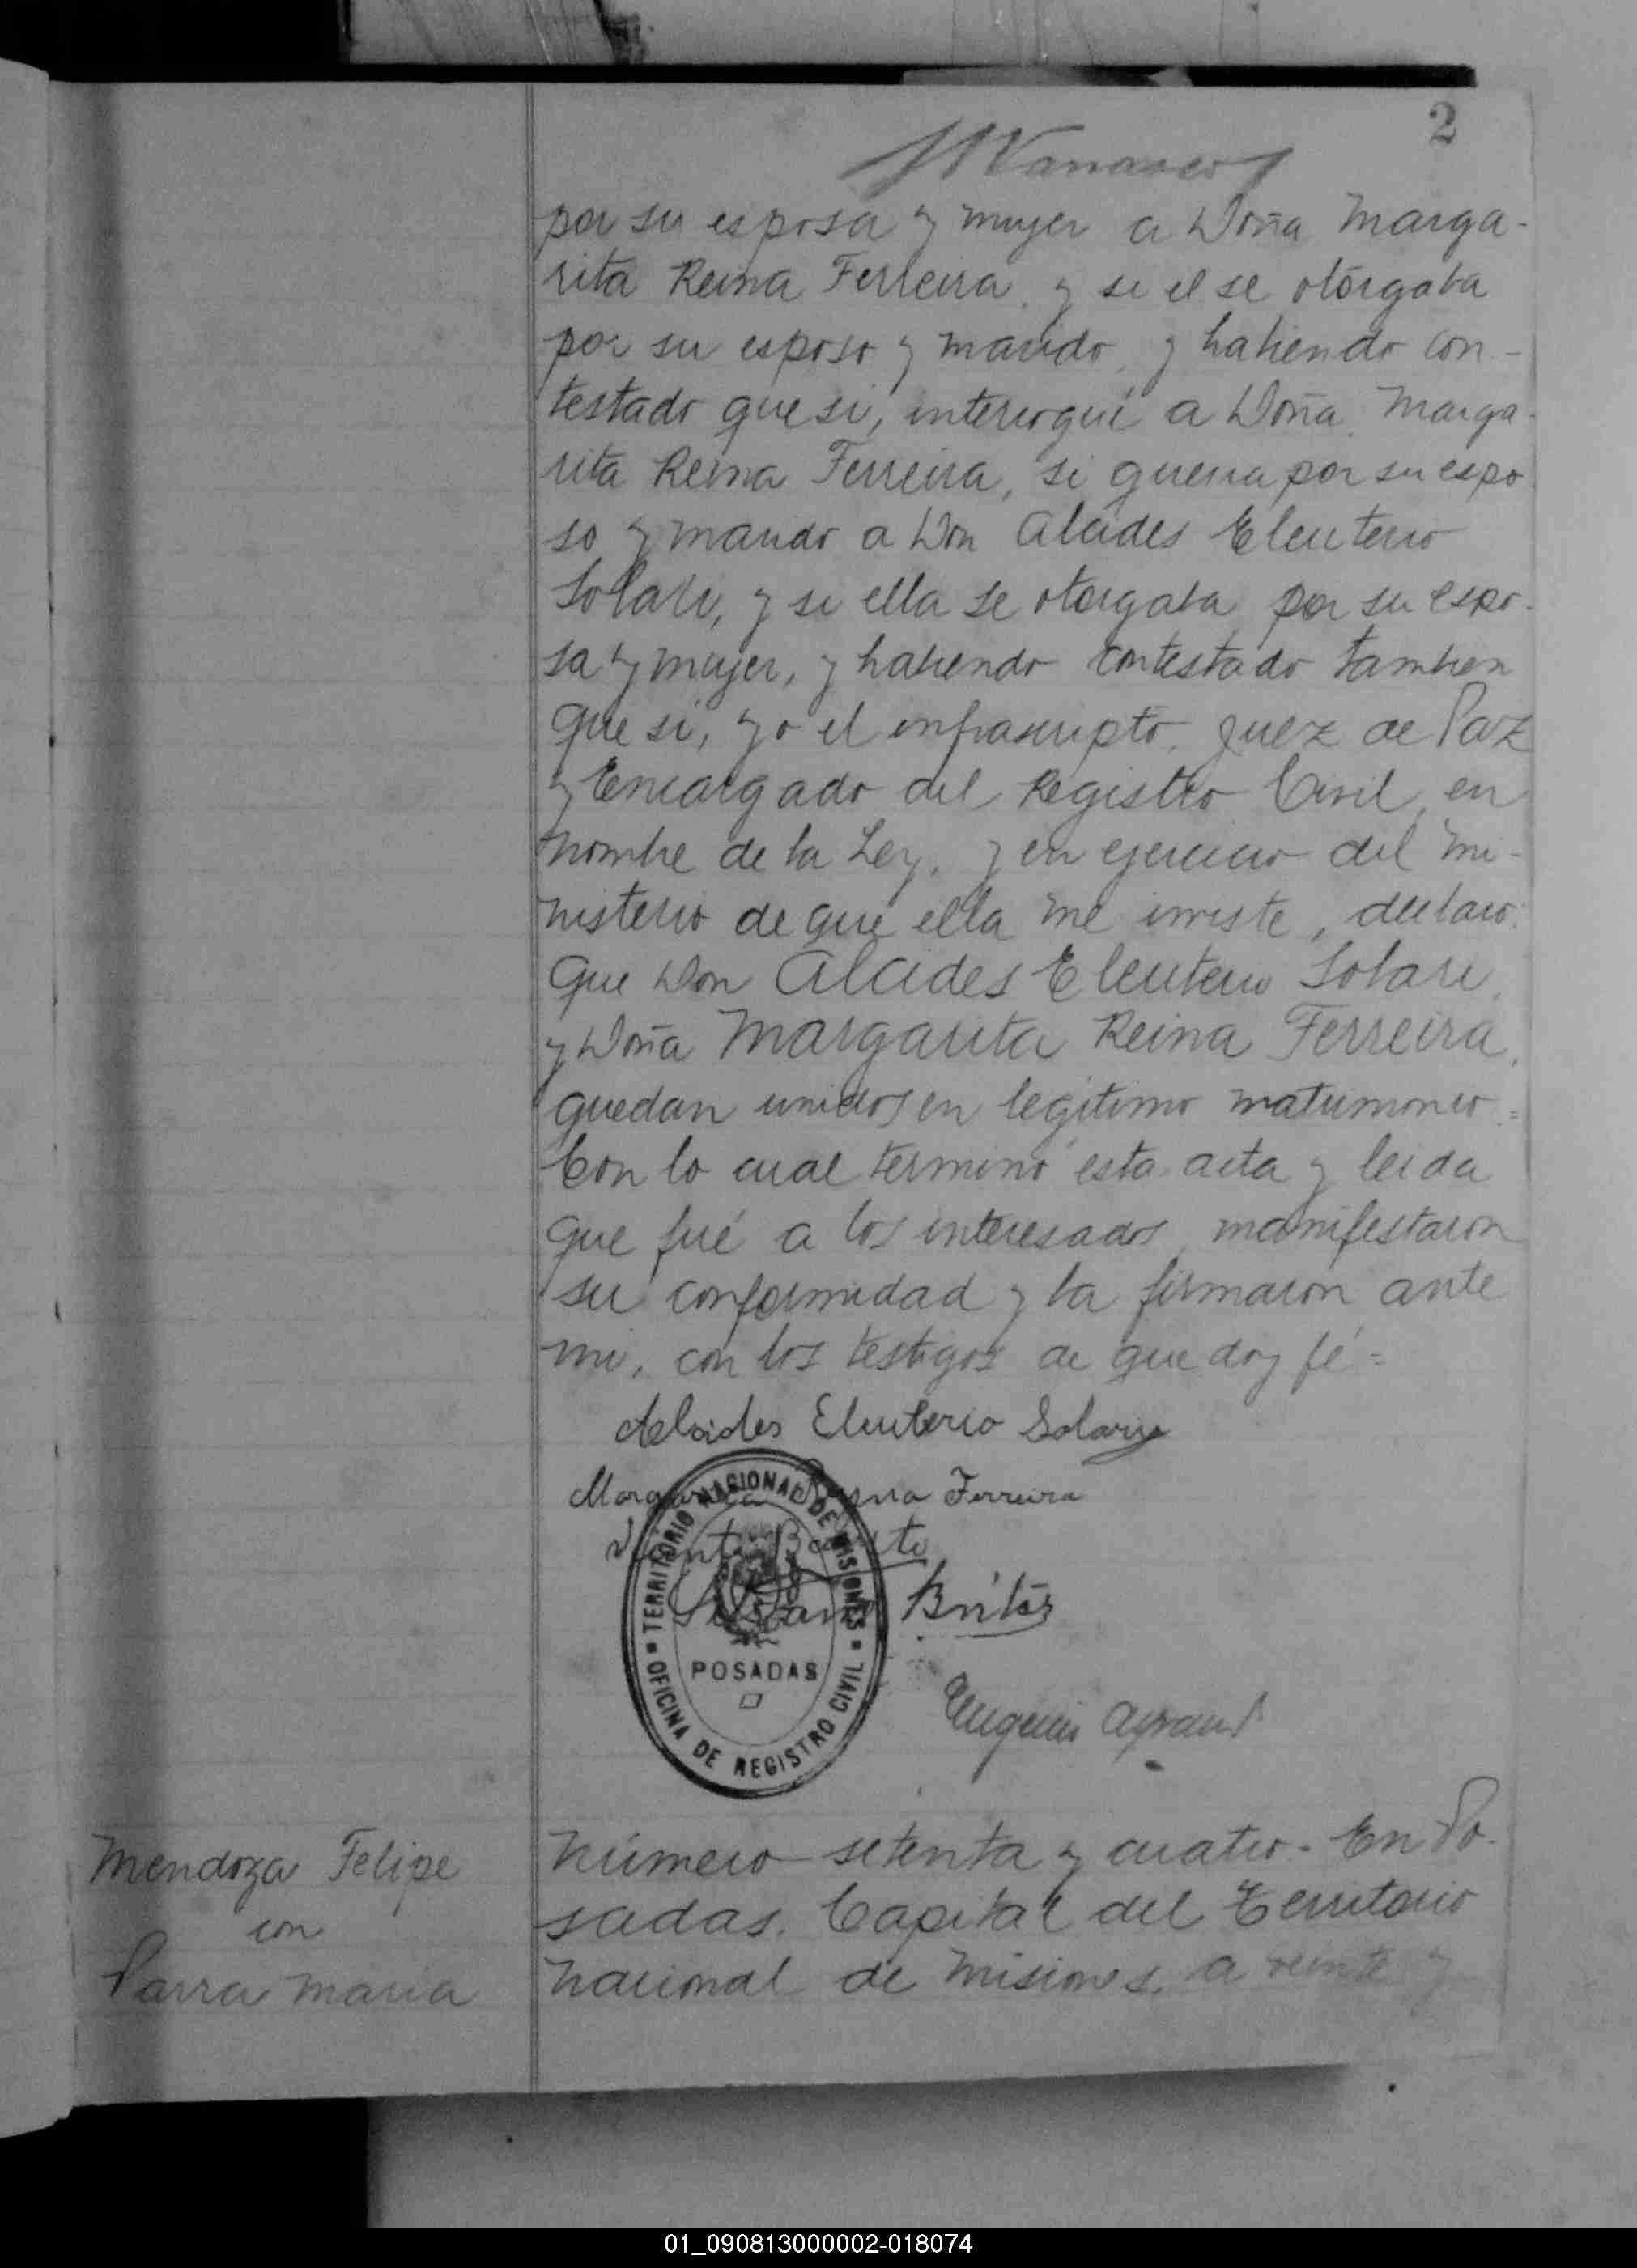 2
por su esposa y mujer a Doña Marga-
rita Reina Ferreira, y si el se otorgaba
por su esposo y marido, y habiendo con-
testado que si, interrogué a Doña Marga-
rita Reina Ferreira, si queria por su espo-
so y marido a Don Alcides Eleuterio
Solari, y si ella se otorgaba por su espo-
sa y mujer, y habiendo contestado tambien
que si, yo el infrascripto, Juez de Paz
y Encargado del Registro Civil, en
nombre de la Ley, y en ejercicio del mi-
nisterio de que ella me inviste, declaro:
que Don Alcides Eleuterio Solari,
y Doña Margarita Reina Ferreira,
quedan unidos en legitimo matrimonio.=
Con lo cual terminó esta acta y leida
que fué a los interesados, manifestaron
su conformidad y la firmaron ante
mi, con los testigos de que doy fé=
Alcides Eleuterio Solari
Margarita Reina Ferreira
Britos
TERRITORIO NACIONAL DE MISIONES
POSADAS
OFICINA DE REGISTRO CIVIL
Mendoza Felipe
con
Parra Maria
Número setenta y cuatro.- En Po-
sadas, Capital del Territorio
Nacional de Misiones, a veinte y
01_090813000002-018074